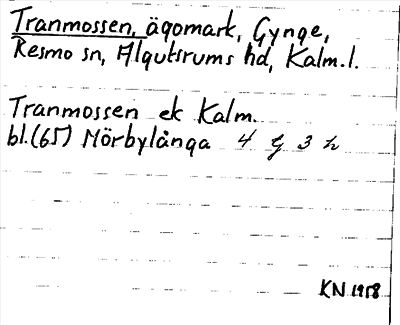 Tranmossen, ägomark, Gynge,
Resmo sn, Algutsrums hd, Kalm. l.
Tranmossen ek Kalm.
bl. (65) Mörbylånga 4 G 3 h
KN 1958